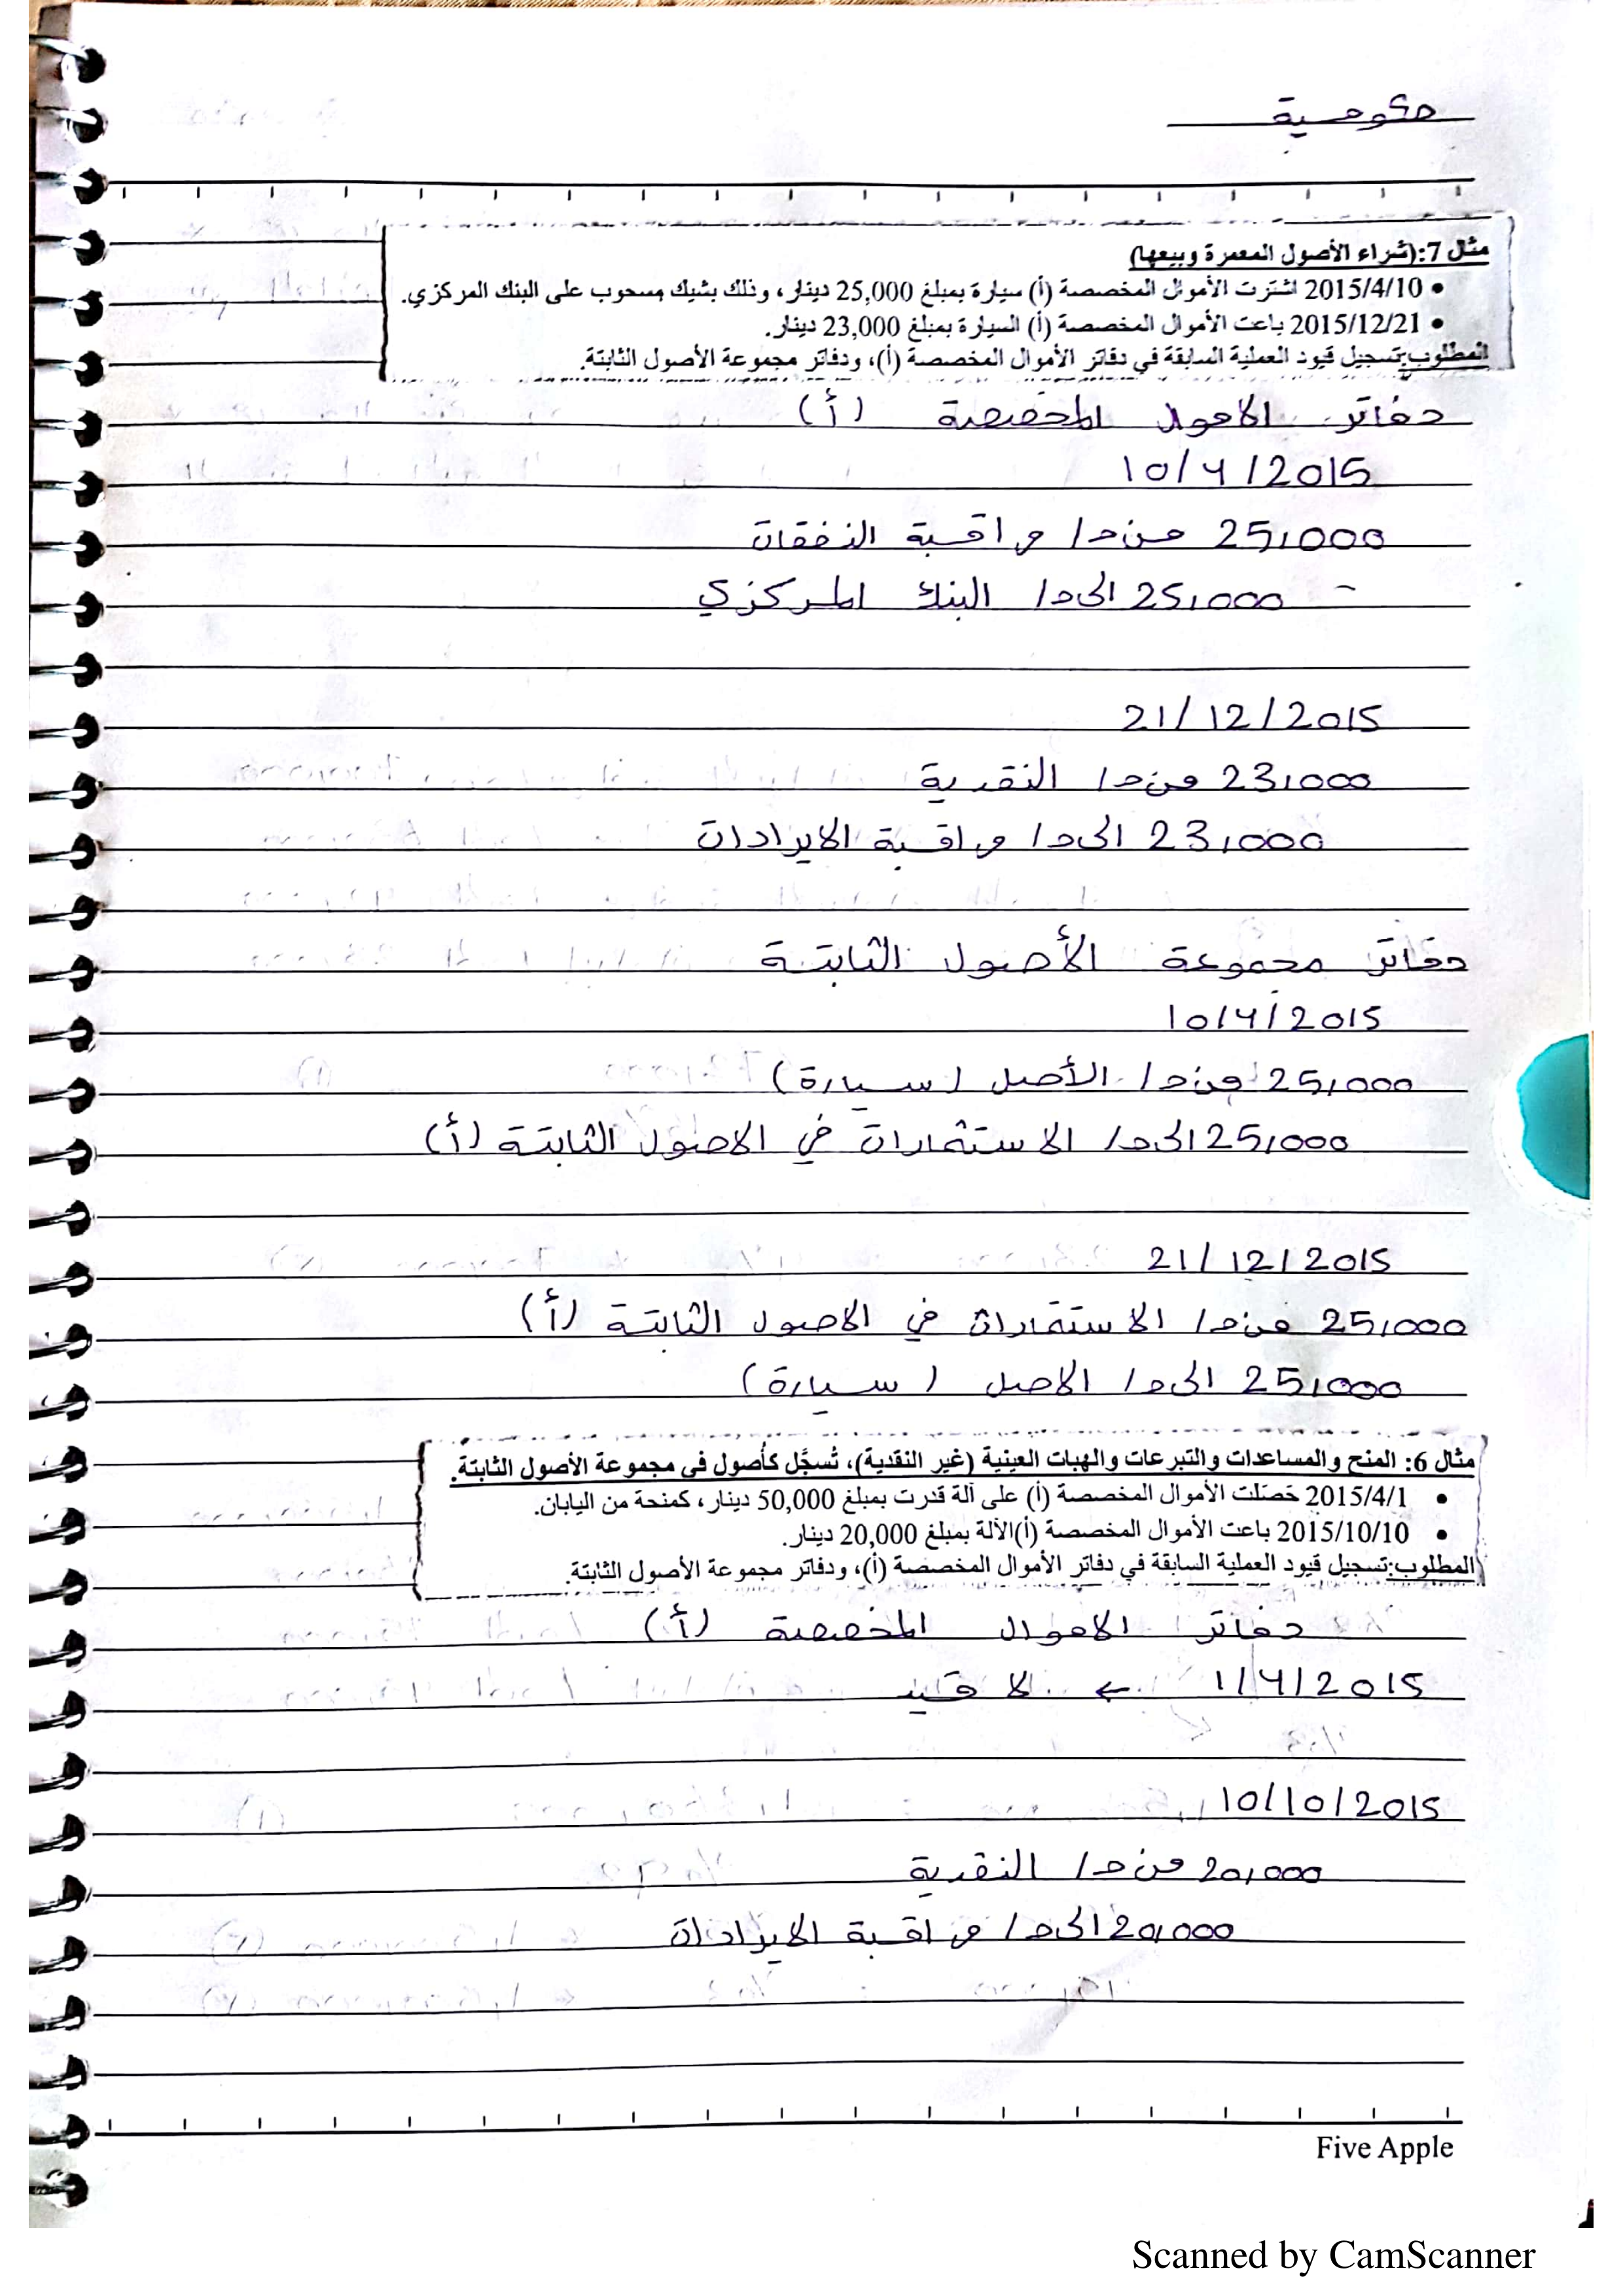 حكومية
مثال 7:(شراء الأصول المعمرة وبيعها)
• 2015/4/10 اشترت الأموال المخصصة (أ) سيارة بمبلغ 25,000 دينار، وذلك بشيك مسحوب على البنك المركزي.
• 2015/12/21 باعت الأموال المخصصة (أ) السيارة بمبلغ 23,000 دينار.
المطلوب:تسجيل قيود العملية السابقة في دفاتر الأموال المخصصة (أ)، ودفاتر مجموعة الأصول الثابتة.
دفاتر الاموال المخصصة (أ)
10/4/2015
25,000 من ح/ مراقبة النفقات
25,000 الى ح/ البنك المركزي
21/12/2015
23,000 من ح/ النقدية
23,000 الى ح/ مراقبة الايرادات
دفاتر مجموعة الأصول الثابتة
10/4/2015
25,000 من ح/ الأصل (سيارة)
25,000 الى ح/ الاستثمارات في الاصول الثابتة (أ)
21/12/2015
25,000 من ح/ الاستثمارات في الاصول الثابتة (أ)
25,000 الى ح/ الاصل (سيارة)
مثال 6: المنح والمساعدات والتبرعات والهبات العينية (غير النقدية)، تُسجَّل كأصول في مجموعة الأصول الثابتة.
• 2015/4/1 حَصَلت الأموال المخصصة (أ) على آلة قدرت بمبلغ 50,000 دينار، كمنحة من اليابان.
• 2015/10/10 باعت الأموال المخصصة (أ)الآلة بمبلغ 20,000 دينار.
المطلوب:تسجيل قيود العملية السابقة في دفاتر الأموال المخصصة (أ)، ودفاتر مجموعة الأصول الثابتة.
دفاتر الاموال المخصصة (أ)
1/4/2015 ← لا قيد
10/10/2015
20,000 من ح/ النقدية
20,000 الى ح/ مراقبة الايرادات
Five Apple
Scanned by CamScanner